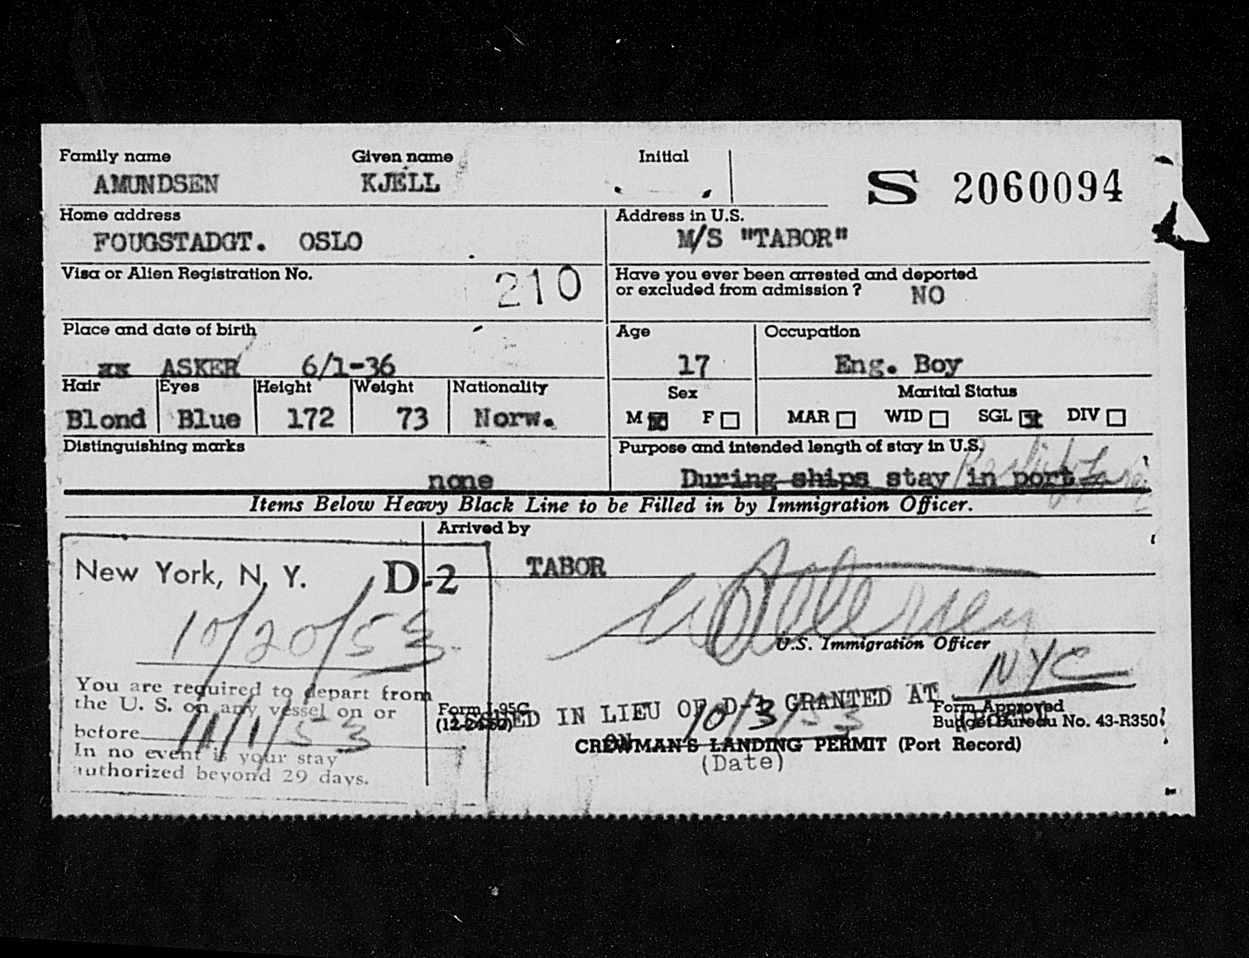 Family name Given name Initial
AMUNDSEN KJELL S 2060094
Home address Address in U.S.
FOUGSTADGT. OSLO M/S "TABOR"
Visa or Alien Registration No. Have you ever been arrested and deported
210 or excluded from admission ? NO
Place and date of birth Age Occupation
xx ASKER 6/1-36 17 Eng. Boy
Hair Eyes Height Weight Nationality Sex Marital Status
Blond Blue 172 73 Norw. M F MAR WID SGL DIV
Distinguishing marks Purpose and intended length of stay in U.S.
none During ships stay in port
Items Below Heavy Black Line to be Filled in by Immigration Officer.
Arrived by
New York, N. Y. D-2 TABOR
10/20/53
U.S. Immigration Officer
You are required to depart from
the U. S. on any vessel on or
before 11/1/53
In no event is your stay
authorized beyond 29 days.
NYC
ISSUED IN LIEU OF D-3 GRANTED AT
Form I-95C Form Approved
Budget Bureau No. 43-R350.
ON 10/3/53
CREWMAN'S LANDING PERMIT (Port Record)
(Date)